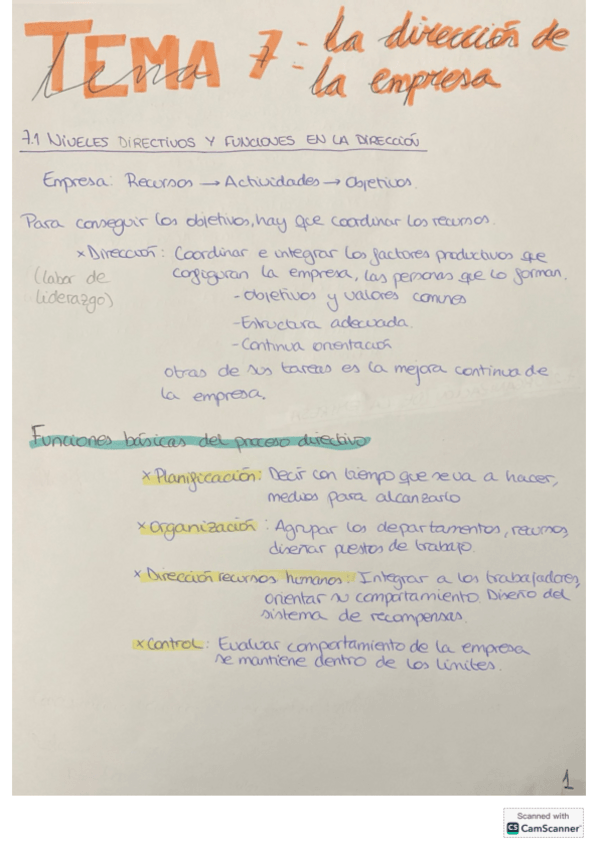 TEMA 7: la dirección de
tema
la empresa
7.1 NIVELES DIRECTIVOS Y FUNCIONES EN LA DIRECCIÓN
Empresa: Recursos → Actividades → Objetivos.
Para conseguir los objetivos, hay que coordinar los recursos.
× Dirección: Coordinar e integrar los factores productivos que
(labor de
liderazgo)
configuran la empresa, las personas que lo forman.
- Objetivos y valores comunes
- Estructura adecuada.
- Continua orientación
otras de sus tareas es la mejora continua de
la empresa.
Funciones básicas del proceso directivo
× Planificación: Decir con tiempo que se va a hacer,
medios para alcanzarlo
× Organización: Agrupar los departamentos, recursos,
diseñar puestos de trabajo.
× Dirección recursos humanos: Integrar a los trabajadores,
orientar su comportamiento. Diseño del
sistema de recompensas.
× Control: Evaluar comportamiento de la empresa
se mantiene dentro de los límites.
1
Scanned with
CS CamScanner